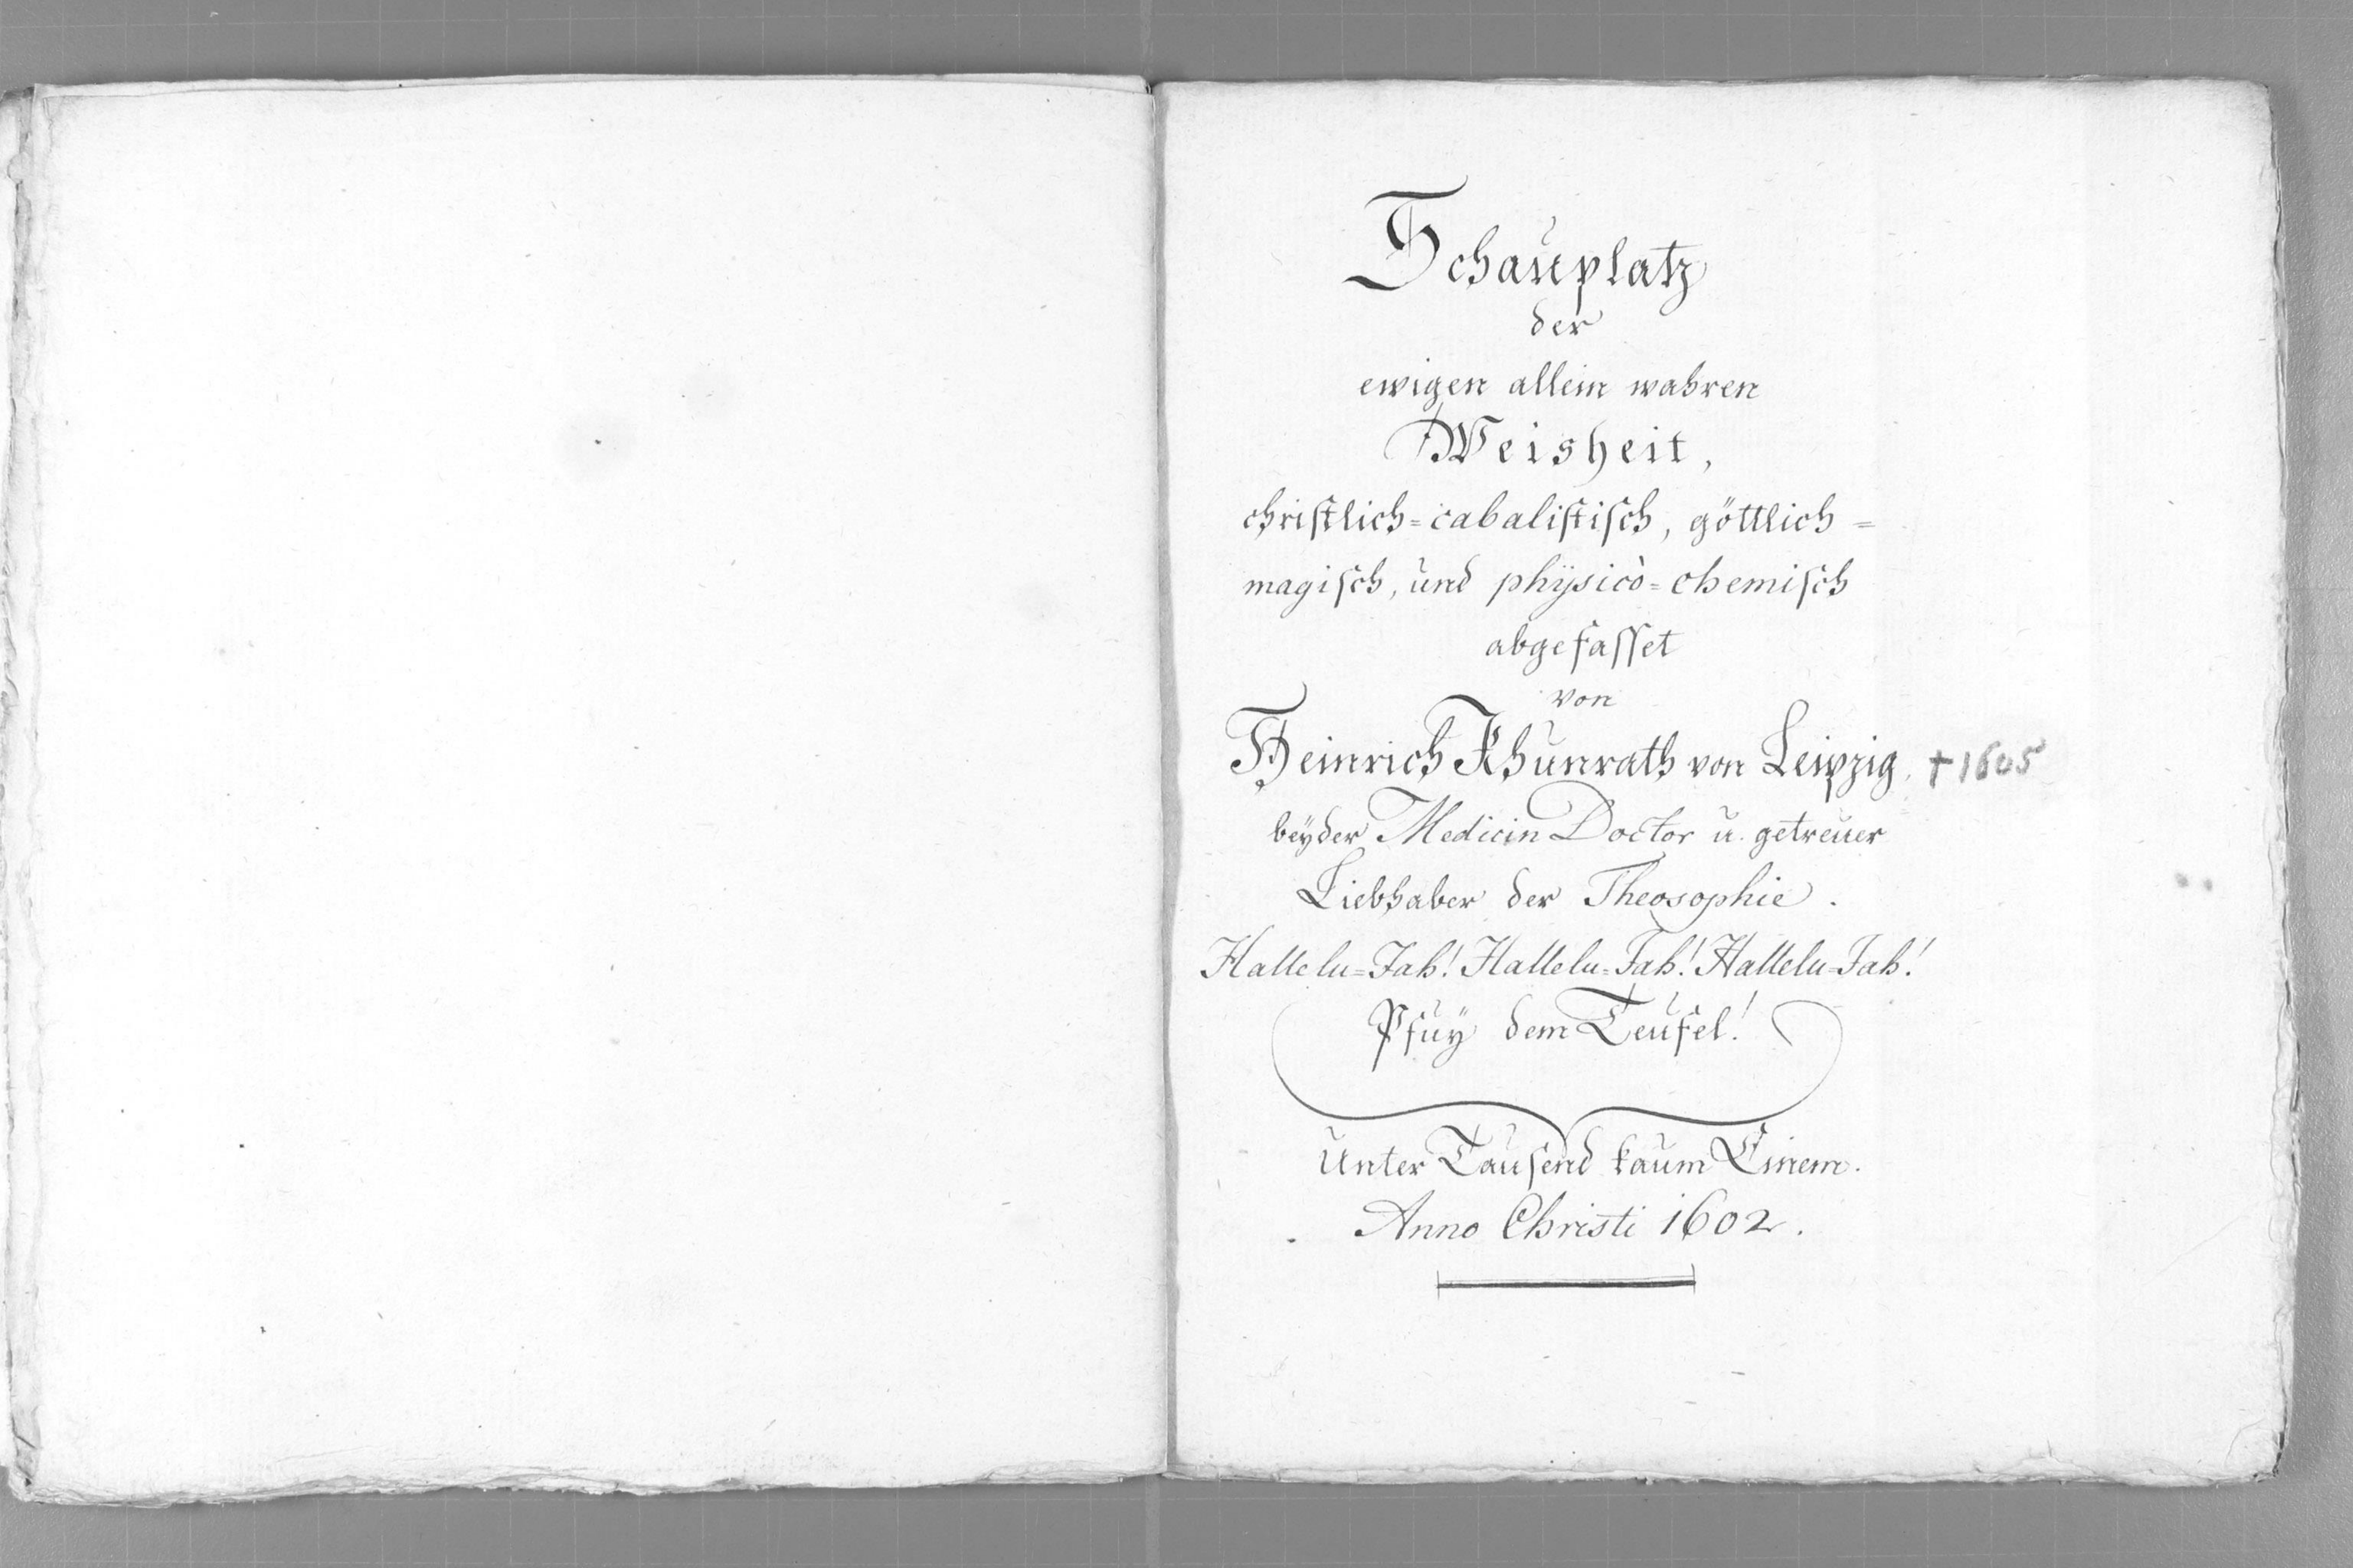 Schauplatz
der
ewigen allein wahren
Weisheit,
christlich=cabalistisch, göttlich=
magisch, und physicò=chemisch
abgefasset
von
Heinrich Khunrath von Leipzig, † 1605
beyder Medicin Doctor u. getreuer
Liebhaber der Theosophie.
Hallelu=Jah! Hallelu=Jah! Hallelu=Jah!
Pfuy dem Teufel!
Unter Tausend kaum Einem.
Anno Christi 1602.